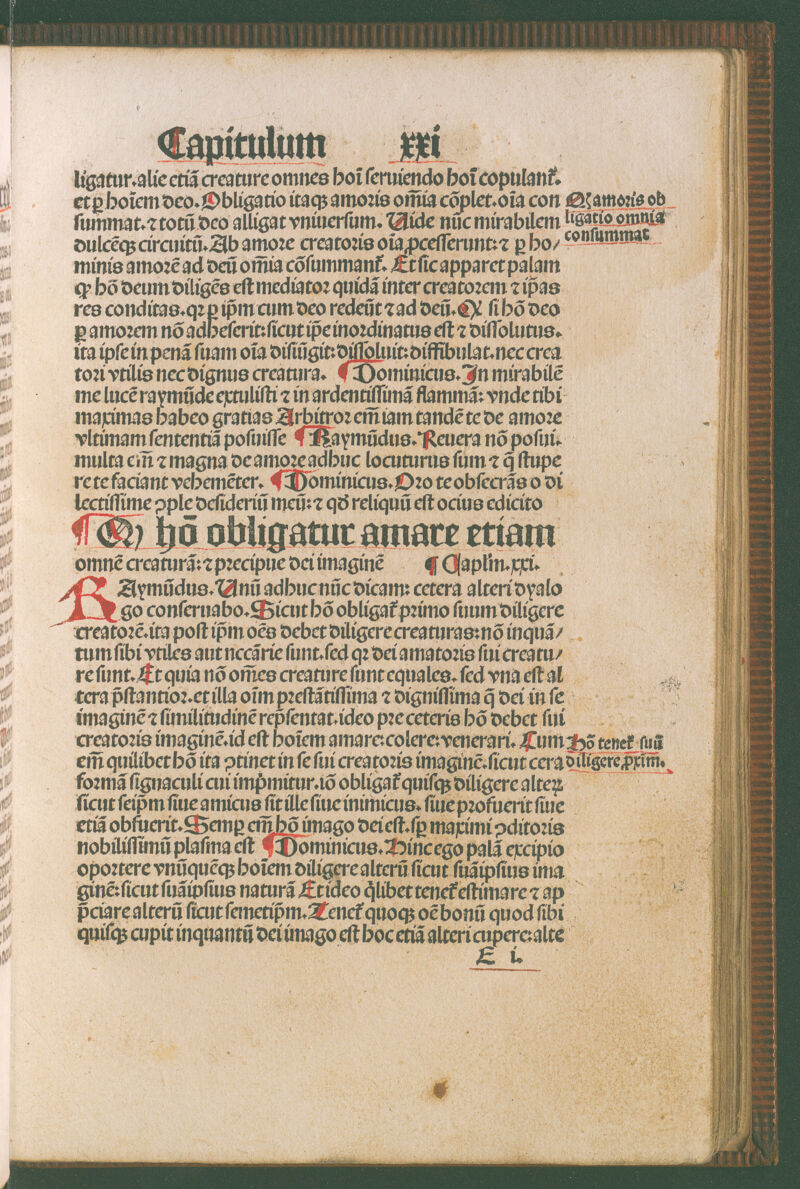 Capitulum xxi
ligatur. alie etiā creature omnes hoī seruiendo hoī copulant᷑.
et ꝑ hoīem deo. Obligatio itaqꝫ amoris om̄ia cōplet. oīa con
summat. ⁊ totū deo alligat vniuersum. Uide nūc mirabilem
dulcēqꝫ circuitū. Ab amore creatoris oīa ꝓcesserunt: ⁊ ꝑ ho/
minis amorē ad deū om̄ia cōsummant᷑. Et sic apparet palam
ꝙ hō deum diligēs est mediator quidā inter creatorem ⁊ ip̄as
res conditas. qꝛ ꝑ ip̄m cum deo redeūt ⁊ ad deū. Qꝛ si hō deo
ꝑ amorem nō adheserit: sicut ip̄e inordinatus est ⁊ dissolutus.
ita ipse in penā suam oīa disiūgit: dissoluit: diffibulat. nec crea
tori vtilis nec dignus creatura. ¶ Dominicus. In mirabilē
me lucē raymūde extulisti ⁊ in ardentissimā flammā: vnde tibi
maximas habeo gratias Arbitror em̄ iam tandē te de amore
vltimam sententiā posuisse ¶ Raymūdus. Reuera nō posui.
multa em̄ ⁊ magna de amore adhuc locuturus sum ⁊ q̄ stupe
re te faciant vehemēter. ¶ Dominicus. Oro te obsecrās o di
lectissime ꝯple desideriū meū: ⁊ qd̄ reliquū est ocius edicito
¶ Qꝙ hō obligatur amare etiam
omnē creaturā: ⁊ precipue dei imaginē ¶ Caplm̄. xxi.
RAymūdus. Unū adhuc nūc dicam: cetera alteri dyalo
go conseruabo. Sicut hō obligat᷑ primo suum diligere
creatorē. ita post ip̄m oēs debet diligere creaturas: nō inquā/
tum sibi vtiles aut nccārie sunt. sed qꝛ dei amatoris sui creatu/
re sunt. Et quia nō om̄es creature sunt equales. sed vna est al
tera p̄stantior. et illa oīm prestātissima ⁊ dignissima q̄ dei in se
imaginē ⁊ similitudinē rep̄sentat. ideo pre ceteris hō debet sui
creatoris imaginē. id est hoīem amare: colere: venerari. Cum
em̄ quilibet hō ita ꝯtinet in se sui creatoris imaginē. sicut cera
formā signaculi cui imp̄mitur. iō obligat᷑ quisqꝫ diligere alterꝝ
sicut seip̄m siue amicus sit ille siue inimicus. siue profuerit siue
etiā obfuerit. Semꝑ em̄ hō imago dei est. sꝑ maximi ꝯditoris
nobilissimū plasma est ¶ Dominicus. Hinc ego palā excipio
oportere vnūquēqꝫ hoīem diligere alterū sicut suāipsius ima
ginē: sicut suāipsius naturā Et ideo q̄libet tenet᷑ estimare ⁊ ap
p̄ciare alterū sicut semetip̄m. Tenet᷑ quoqꝫ oē bonū quod sibi
quisqꝫ cupit inquantū dei imago est hoc etiā alteri cupere: alte
E i.
Qꝙ amoris ob
ligatio omnia
consummat
Hō tenet᷑ suū
diligere ꝓxim̄.